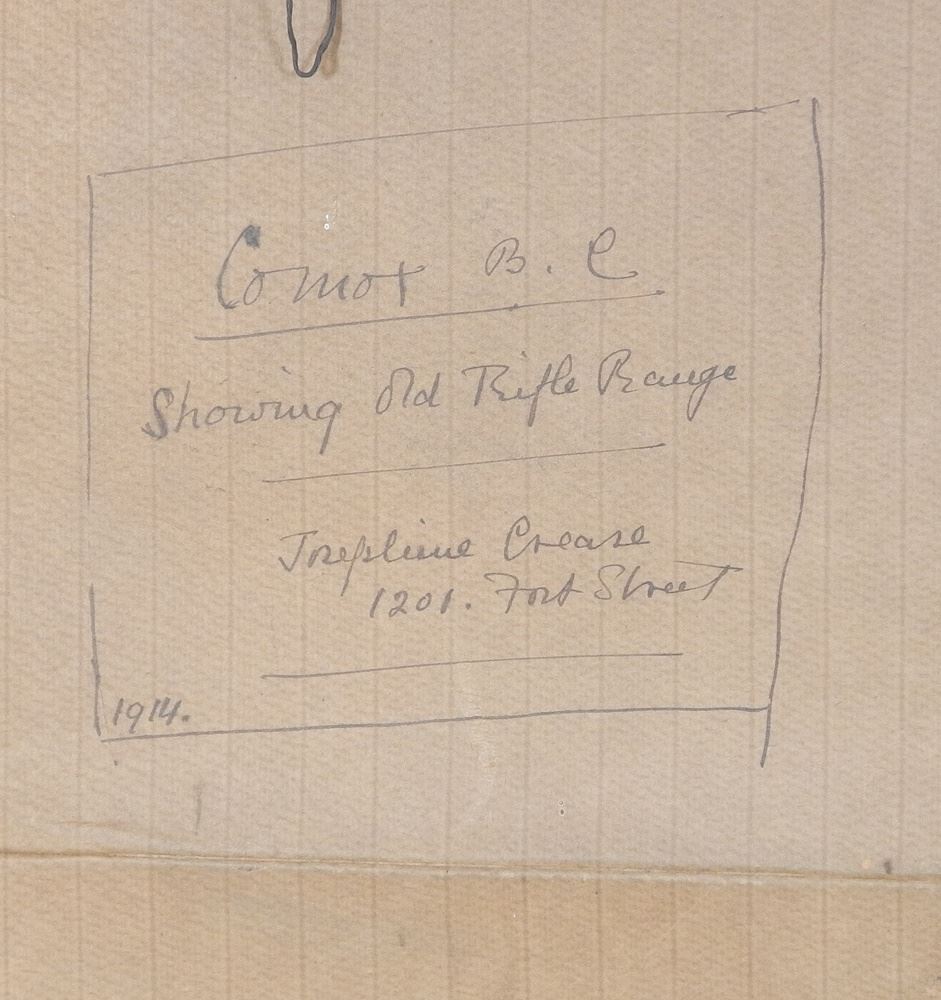 Comox B. C
Showing Old Rifle Range
Josephine Crease
1201. Fort Street
1914.